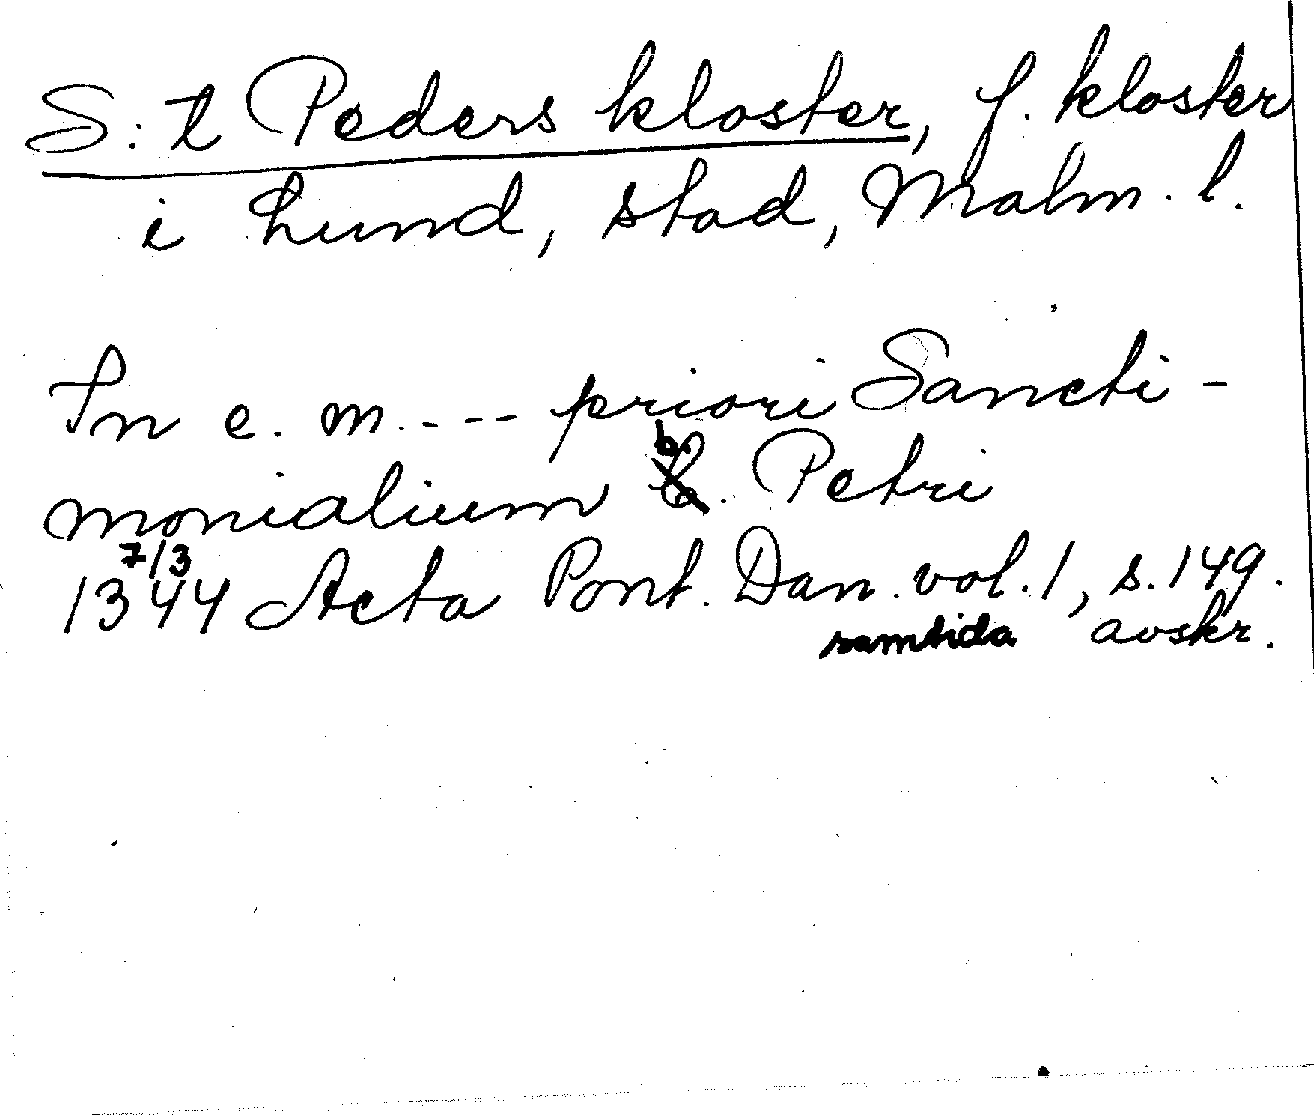 S:t Peders kloster, f. kloster
i Lund, stad, Malm. l.
In e. m. --- priori Sancti-
monialium b. Petri
1344 7/3 Acta Pont. Dan. vol. 1, s. 149.
samtida avskr.